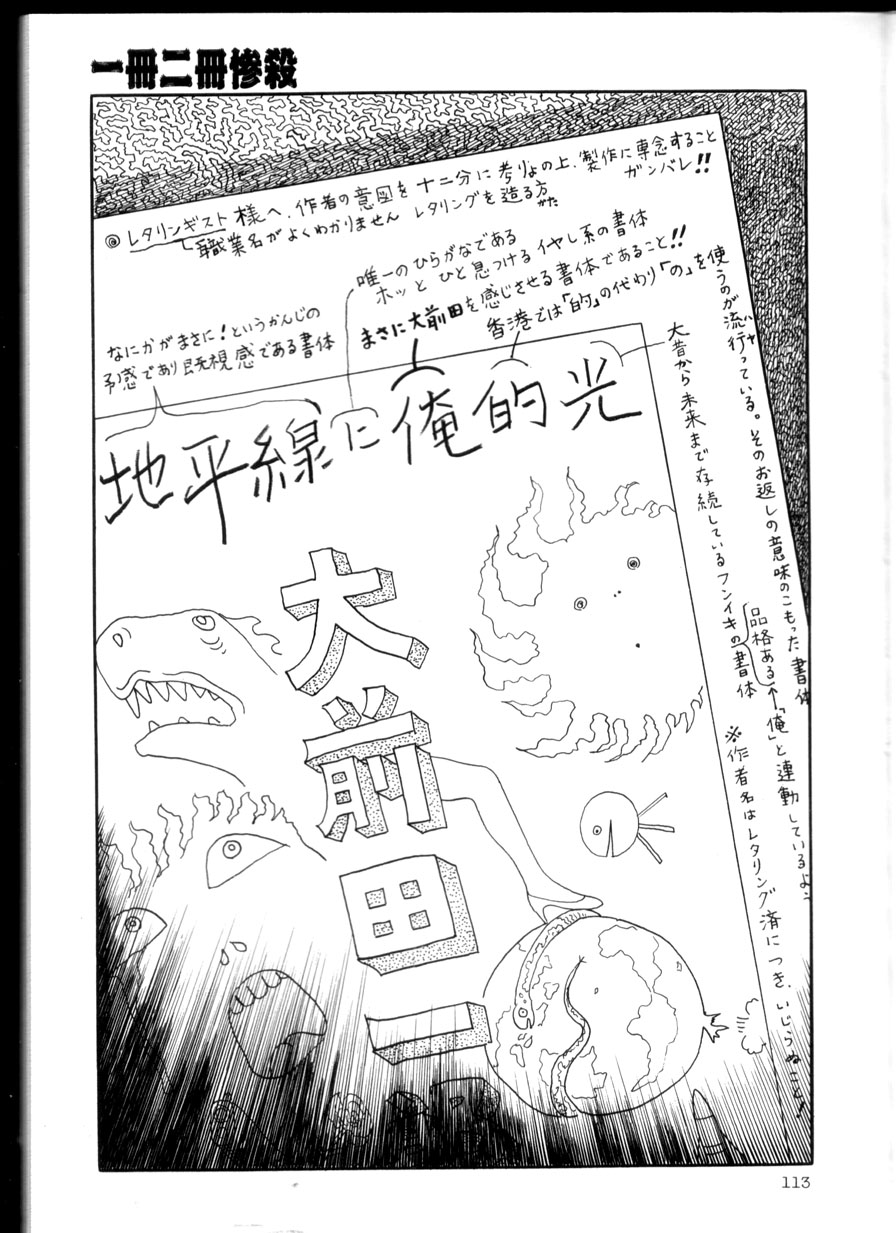 一冊二冊惨殺
◎レタリンギスト様へ、作者の意図を十二分に考りょの上、製作に専念すること
ガンバレ!!
職業名がよくわかりません レタリングを造る方
がた
唯一のひらがなである
ホッとひと息つけるイヤし系の書体
まさに大前田を感じさせる書体であること!!
香港では「的」の代わり「の」を使うのが流行っている。そのお返しの意味のこもった書体
ハヤ
品格ある←「俺」と連動しているよ
なにかがまさに!というかんじの
予感であり既視感である書体
大昔から未来まで存続しているフンイキの書体
※作者名はレタリング済につき、いじらぬこと!
地平線に俺的光
大前田一
113